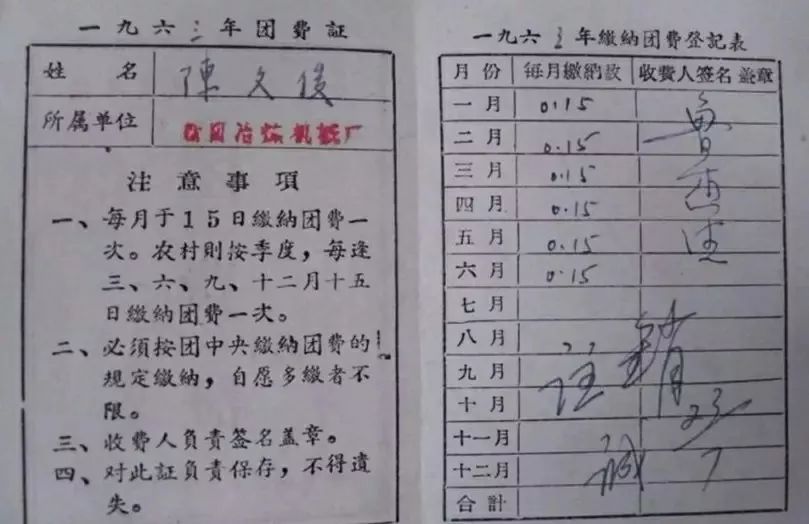 一九六三年团费証
姓名 陳文俊
所属单位 冶炼机械厂
注意事項
一、每月于15日繳納团費一
次。农村則按季度，每逢
三、六、九、十二月十五
日繳納团費一次。
二、必須按团中央繳納团費的
規定繳納，自愿多繳者不
限。
三、收費人負責签名盖章。
四、对此証負責保存，不得遺
失。
一九六三年繳納团費登記表
月份 每月繳納数 收費人签名盖章
一月 0.15
二月 0.15
三月 0.15
四月 0.15
五月 0.15
六月 0.15
七月
八月
九月
十月
十一月
十二月
合計